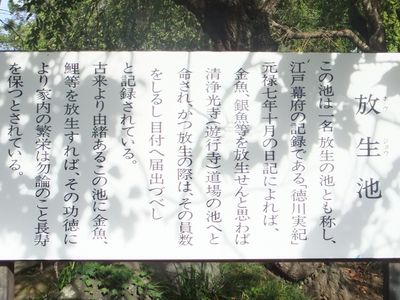 放生池
この池は一名放生の池とも称し、
江戸幕府の記録である「徳川実紀」
元禄七年十月の日記によれば、
金魚、銀魚等を放生せんと思わば
清浄光寺（遊行寺）道場の池へと
命され、かつ放生の際は、その員数
をしるし目付へ届出づべし
と記録されている。
古来より由緒あるこの池に金魚、
鯉等を放生すれば、その功徳に
より家内の繁栄は勿論のこと長寿
を保つとされている。